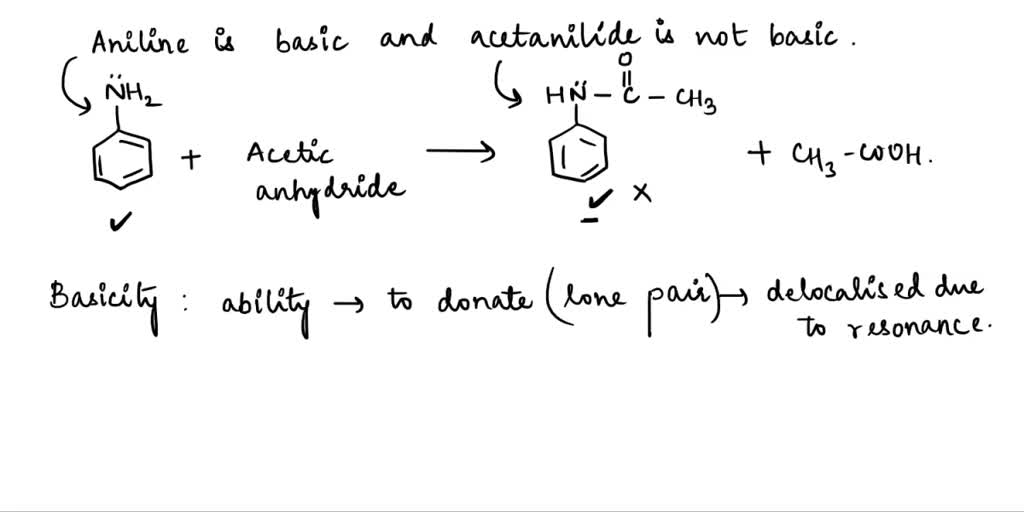 Aniline is basic and acetanilide is not basic.
N̈H₂
O
HN̈ - C - CH₃
+ Acetic anhydride → + CH₃-COOH.
✓
✓ X
Basicity : ability → to donate (lone pair) → delocalised due
to resonance.